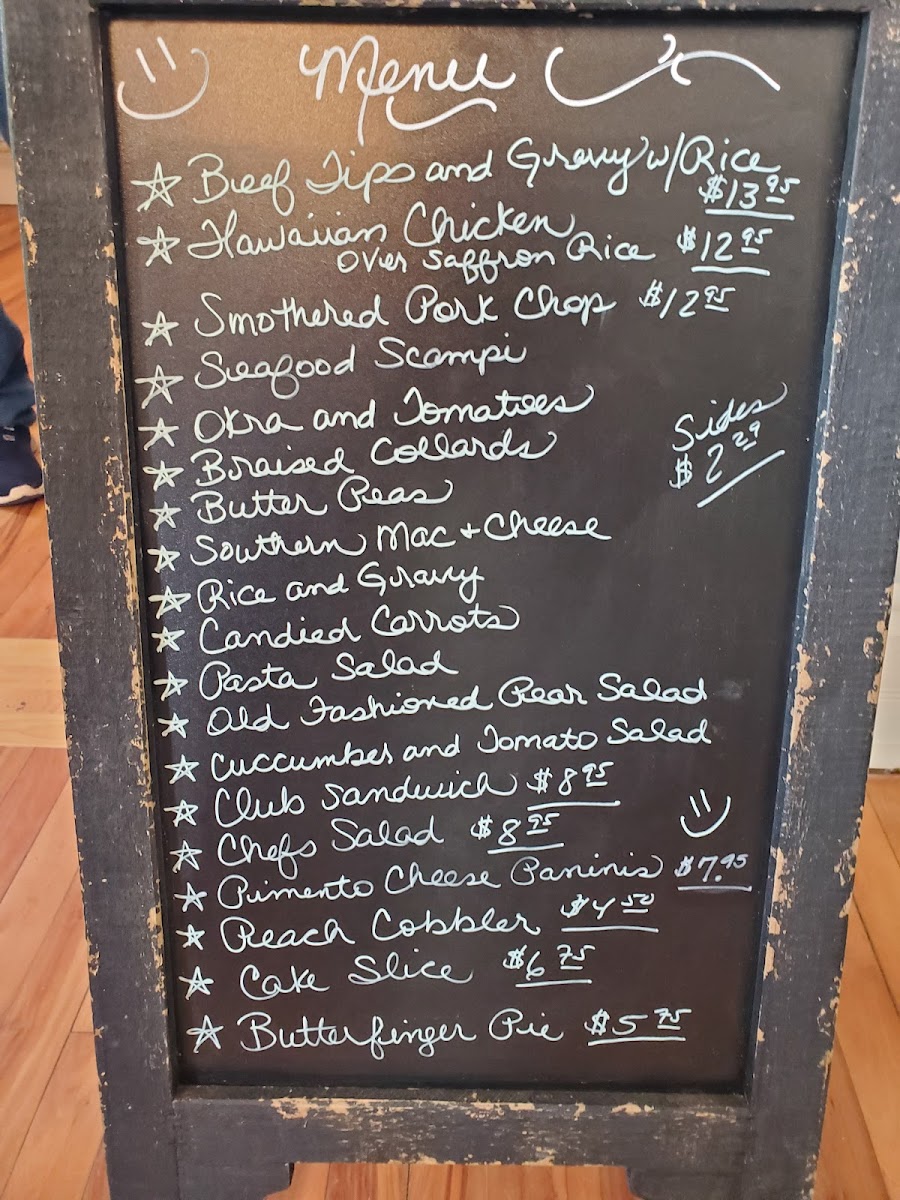 Menu
Beef Tips and Gravy w/Rice
$13.95
Hawaiian Chicken
over Saffron Rice $12.95
Smothered Pork Chop $12.95
Seafood Scampi
Okra and Tomatoes
Sides
$2.29
Braised Collards
Butter Peas
Southern Mac + Cheese
Rice and Gravy
Candied Carrots
Pasta Salad
Old Fashioned Pear Salad
Cuccumber and Tomato Salad
Club Sandwich $8.95
Chefs Salad $8.95
Pimento Cheese Paninis $7.95
Peach Cobbler $4.50
Cake Slice $6.75
Butterfinger Pie $5.75